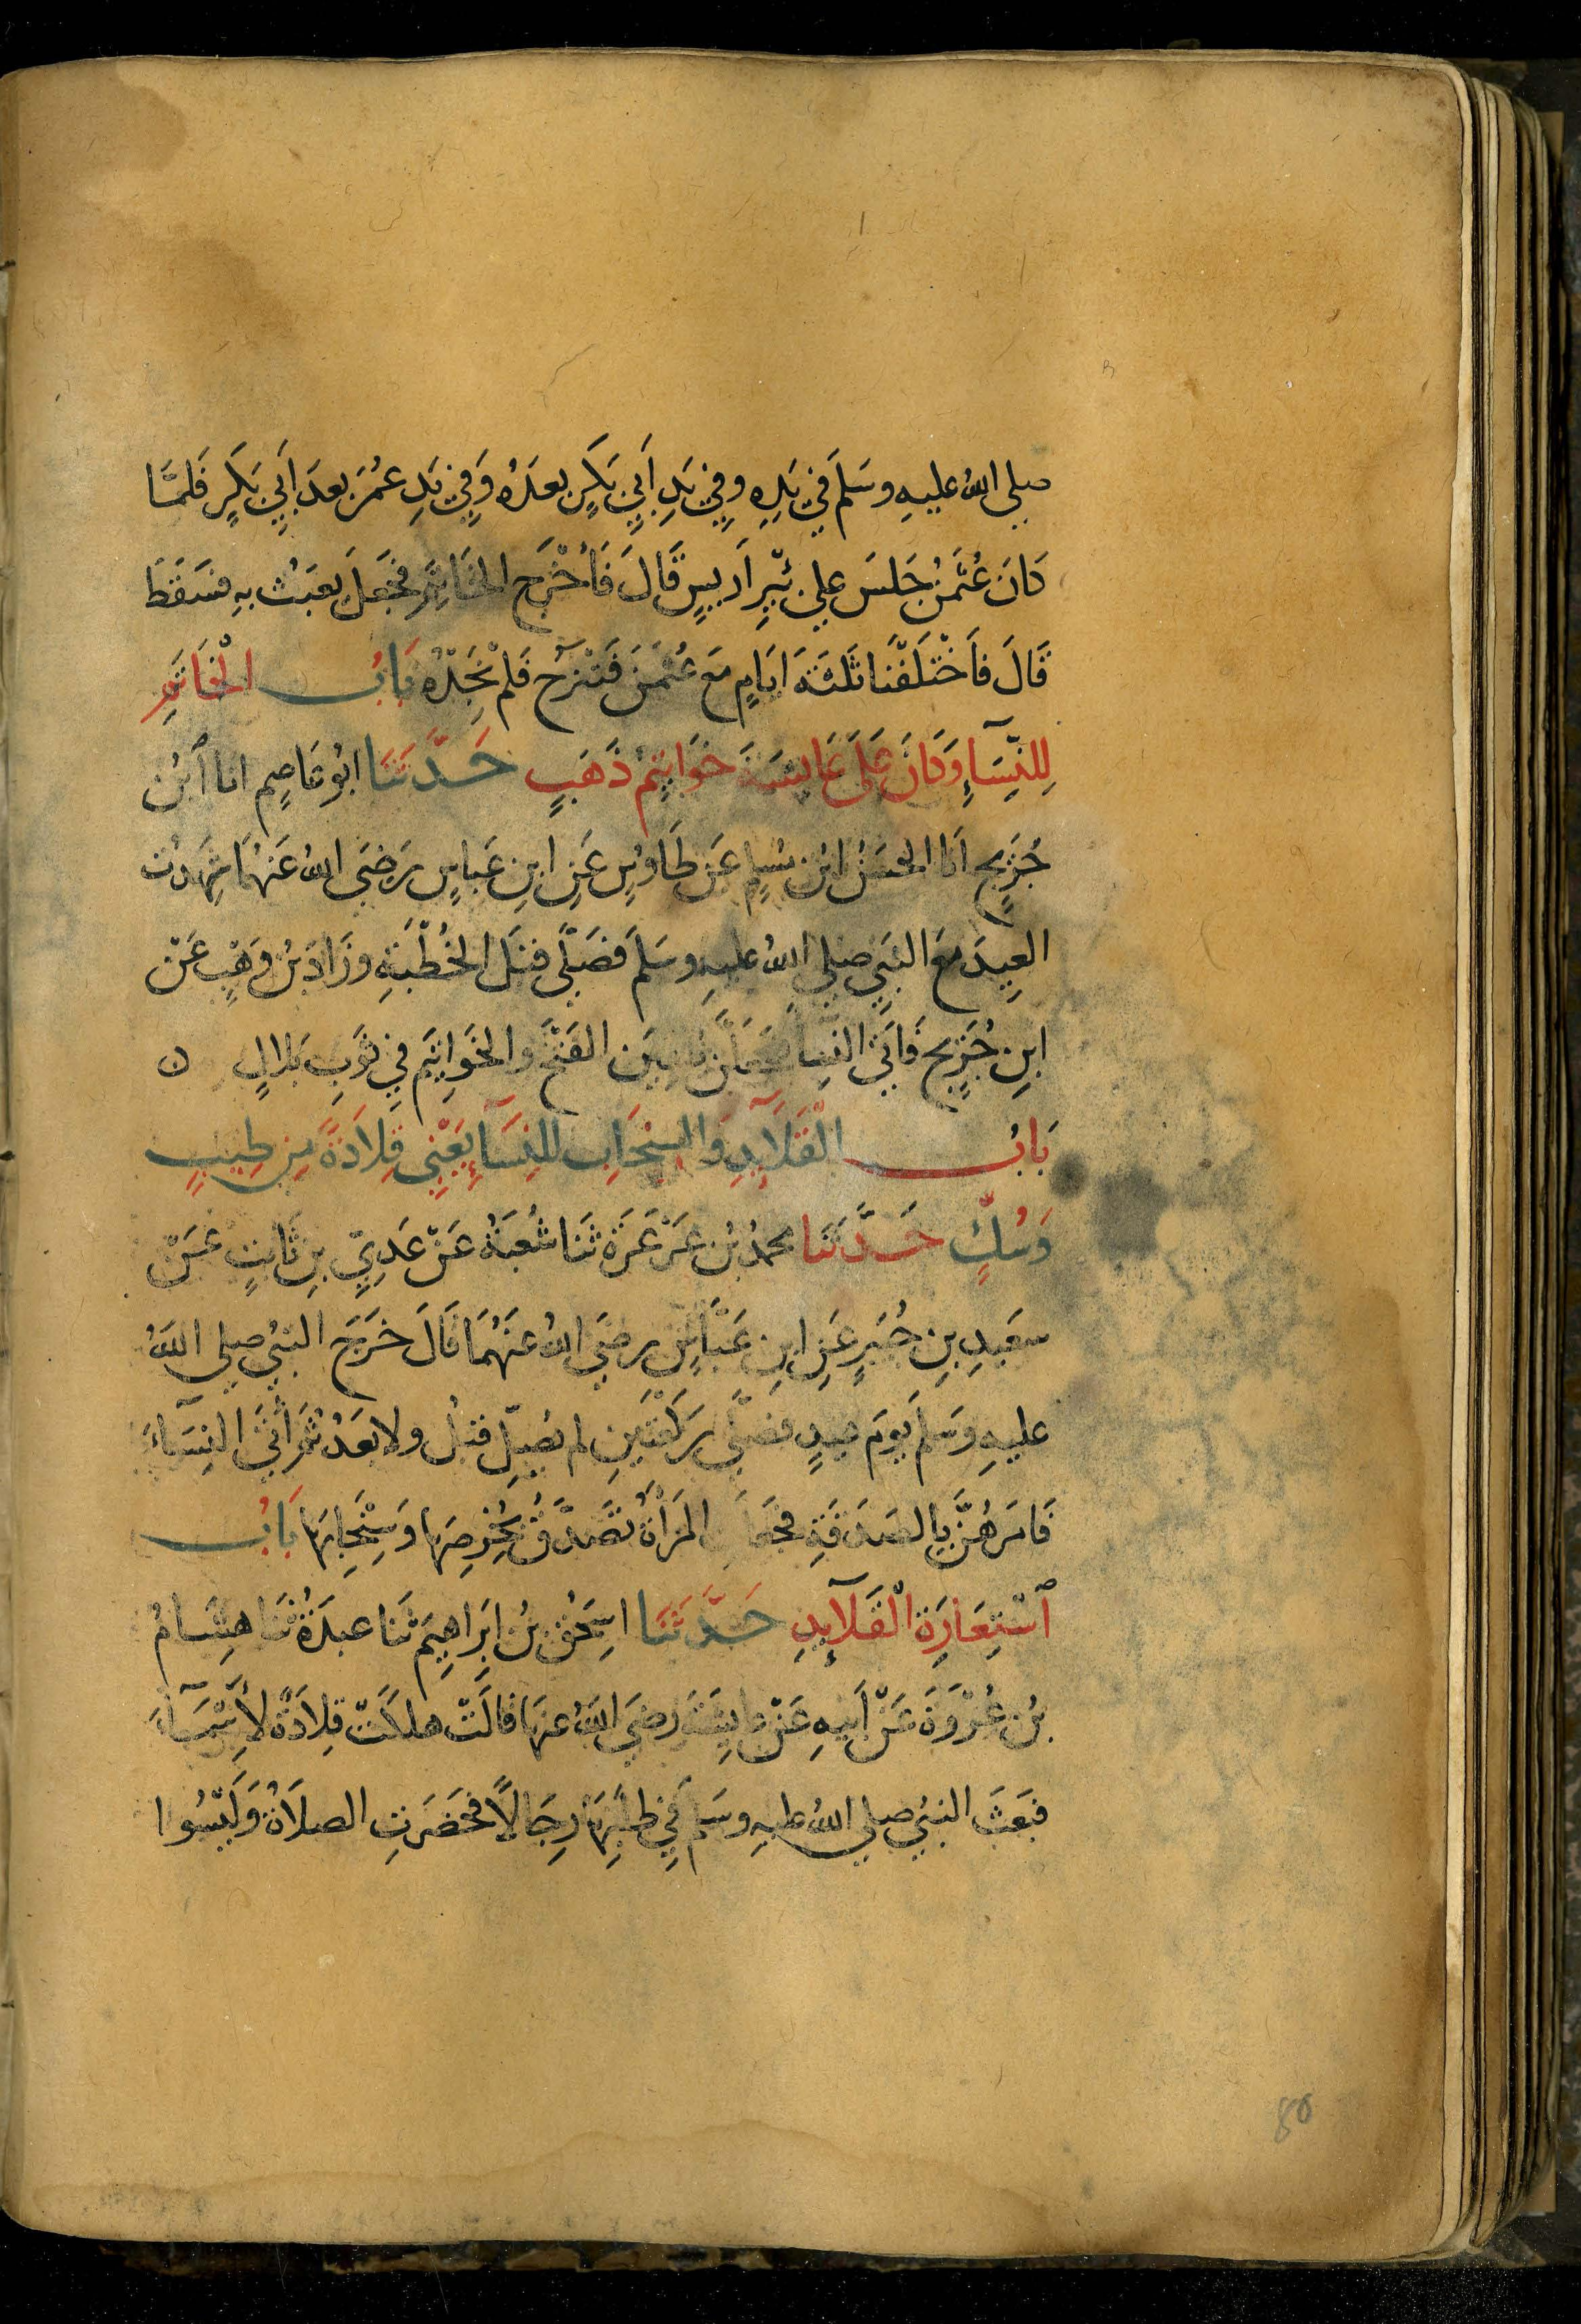 صلى الله عليهِ وسَلمَ في يَدِهِ وفي يَدِ أَبي بَكرٍ بعدَهُ وَفي يَدِ عُمَرَ بعدَ أَبي بَكرٍ فَلمَّا
كانَ عُثمنُ جَلسَ على بِئْرِ اَريسٍ قَالَ فَأَخْرَجَ الخاتَمَ فجَعَلَ يعبَثُ بهِ فسَقَطَ
قَالَ فاَخْتلَفْنا ثَلثَةَ ايامٍ مَعَ عُثمنَ فَنَنْزَحُ فَلمْ نَجِدْهُ بَابُ الْخَاتَمِ
لِلنِّسَآءِ وَكَانَ عَلَى عَايشَةَ خَوَاتِيمُ ذَهَبٍ حَدَّثَنَا ابُو عَاصِم انا ٱبْن
جُرَيج اَنا الحسَنُ ابْن مُسلمٍ عَن طَاوُسٍ عَنِ ابنِ عَباسٍ رَضىَ اللهُ عَنهُمَا شهِدتُ
العِيدَ مَعَ النَبيِّ صلى اللهُ عليهِ وسَلمَ فَصَلَّى قبَل الخُطْبَةِ وزَادَ بْنُ وَهْبٍ عَنْ
ابنِ جُرَيج فَاتَى النِسا فجَعَلْنَ يُلقِينَ الفَتَخَ والخَوَاتِيمَ في ثَوبِ بلالٍ ن
بَابُ الْقَلَآيِدِ وَالسِخَابِ للنِسَآءِ يَعْنِى قِلَادَةً مِن طِيبٍ
وَسُكٍّ حَدَّثَنَا محمدُ بْن عَرْعَرَةَ ثَنا شُعبَةُ عَنْ عَدِيّ بنِ ثابتٍ عَنْ
سعَيدِ بنِ جُبَيرٍ عَنِ ابنِ عَبّاسٍ رضىَ اللهُ عنهُمَا قالَ خَرَجَ النبىُ صلى اللهُ
عليهِ وَسَلمَ يَومَ عيدٍ فصَلَّى رَكْعَتَينِ لم يُصَلِّ قبلُ ولا بَعَدُ ثمَّ أَتَى النِسَآءَ
فَامَرهُنَّ بِالصَدَقَةِ فجَعَلَتِ المَرْأَةُ تَصَدَّقُ بخُرْصِهَا وَسِخَابِهَا بَابُ
ٱسْتِعَارَةِ الْقَلَآيدِ حَدَّثَنَا اسحٰقُ بْنُ ابرَاهِيمَ ثَنا عبدَةُ ثنَا هِشَامُ
بْن عُرْوَةَ عَنْ أَبيهِ عَنْ عايشَةَ رَضىَ اللهُ عنهَا قالَتْ هلكَتْ قِلادَةٌ لأَسْمَآءَ
فبَعَثَ النبىُ صلى اللهُ عليهِ وسَلمَ في طلبِهَا رِجَالاً فحَضَرَتِ الصلَاةُ وَلَيْسُوا
80